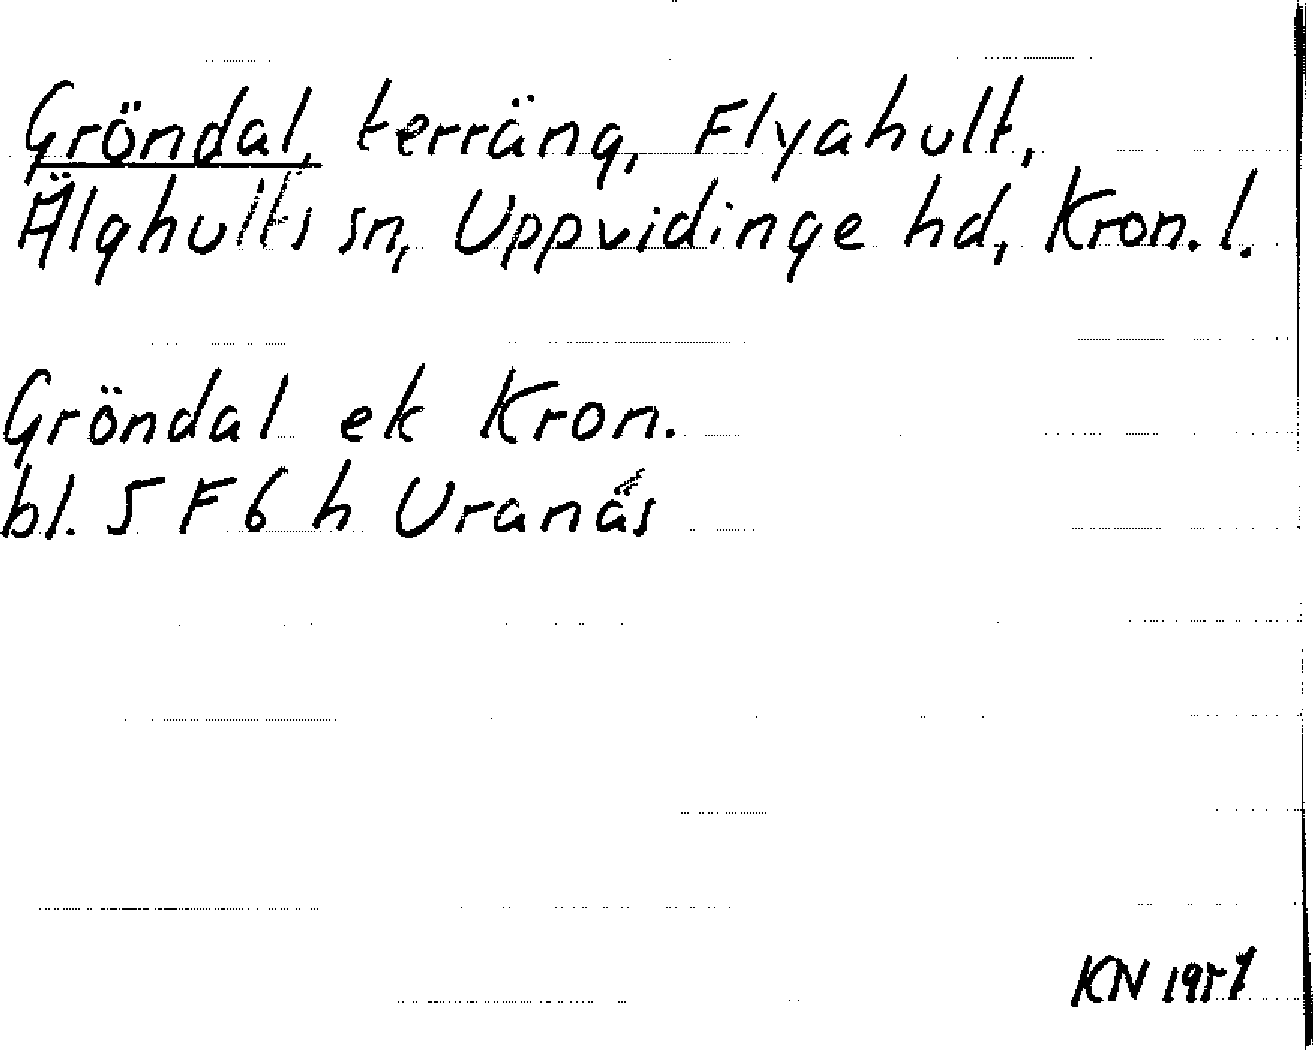 Gröndal, terräng, Flyahult,
Älghults sn, Uppvidinge hd, Kron. l.
Gröndal ek Kron.
bl. 5 F 6 h Uranäs
KN 1957